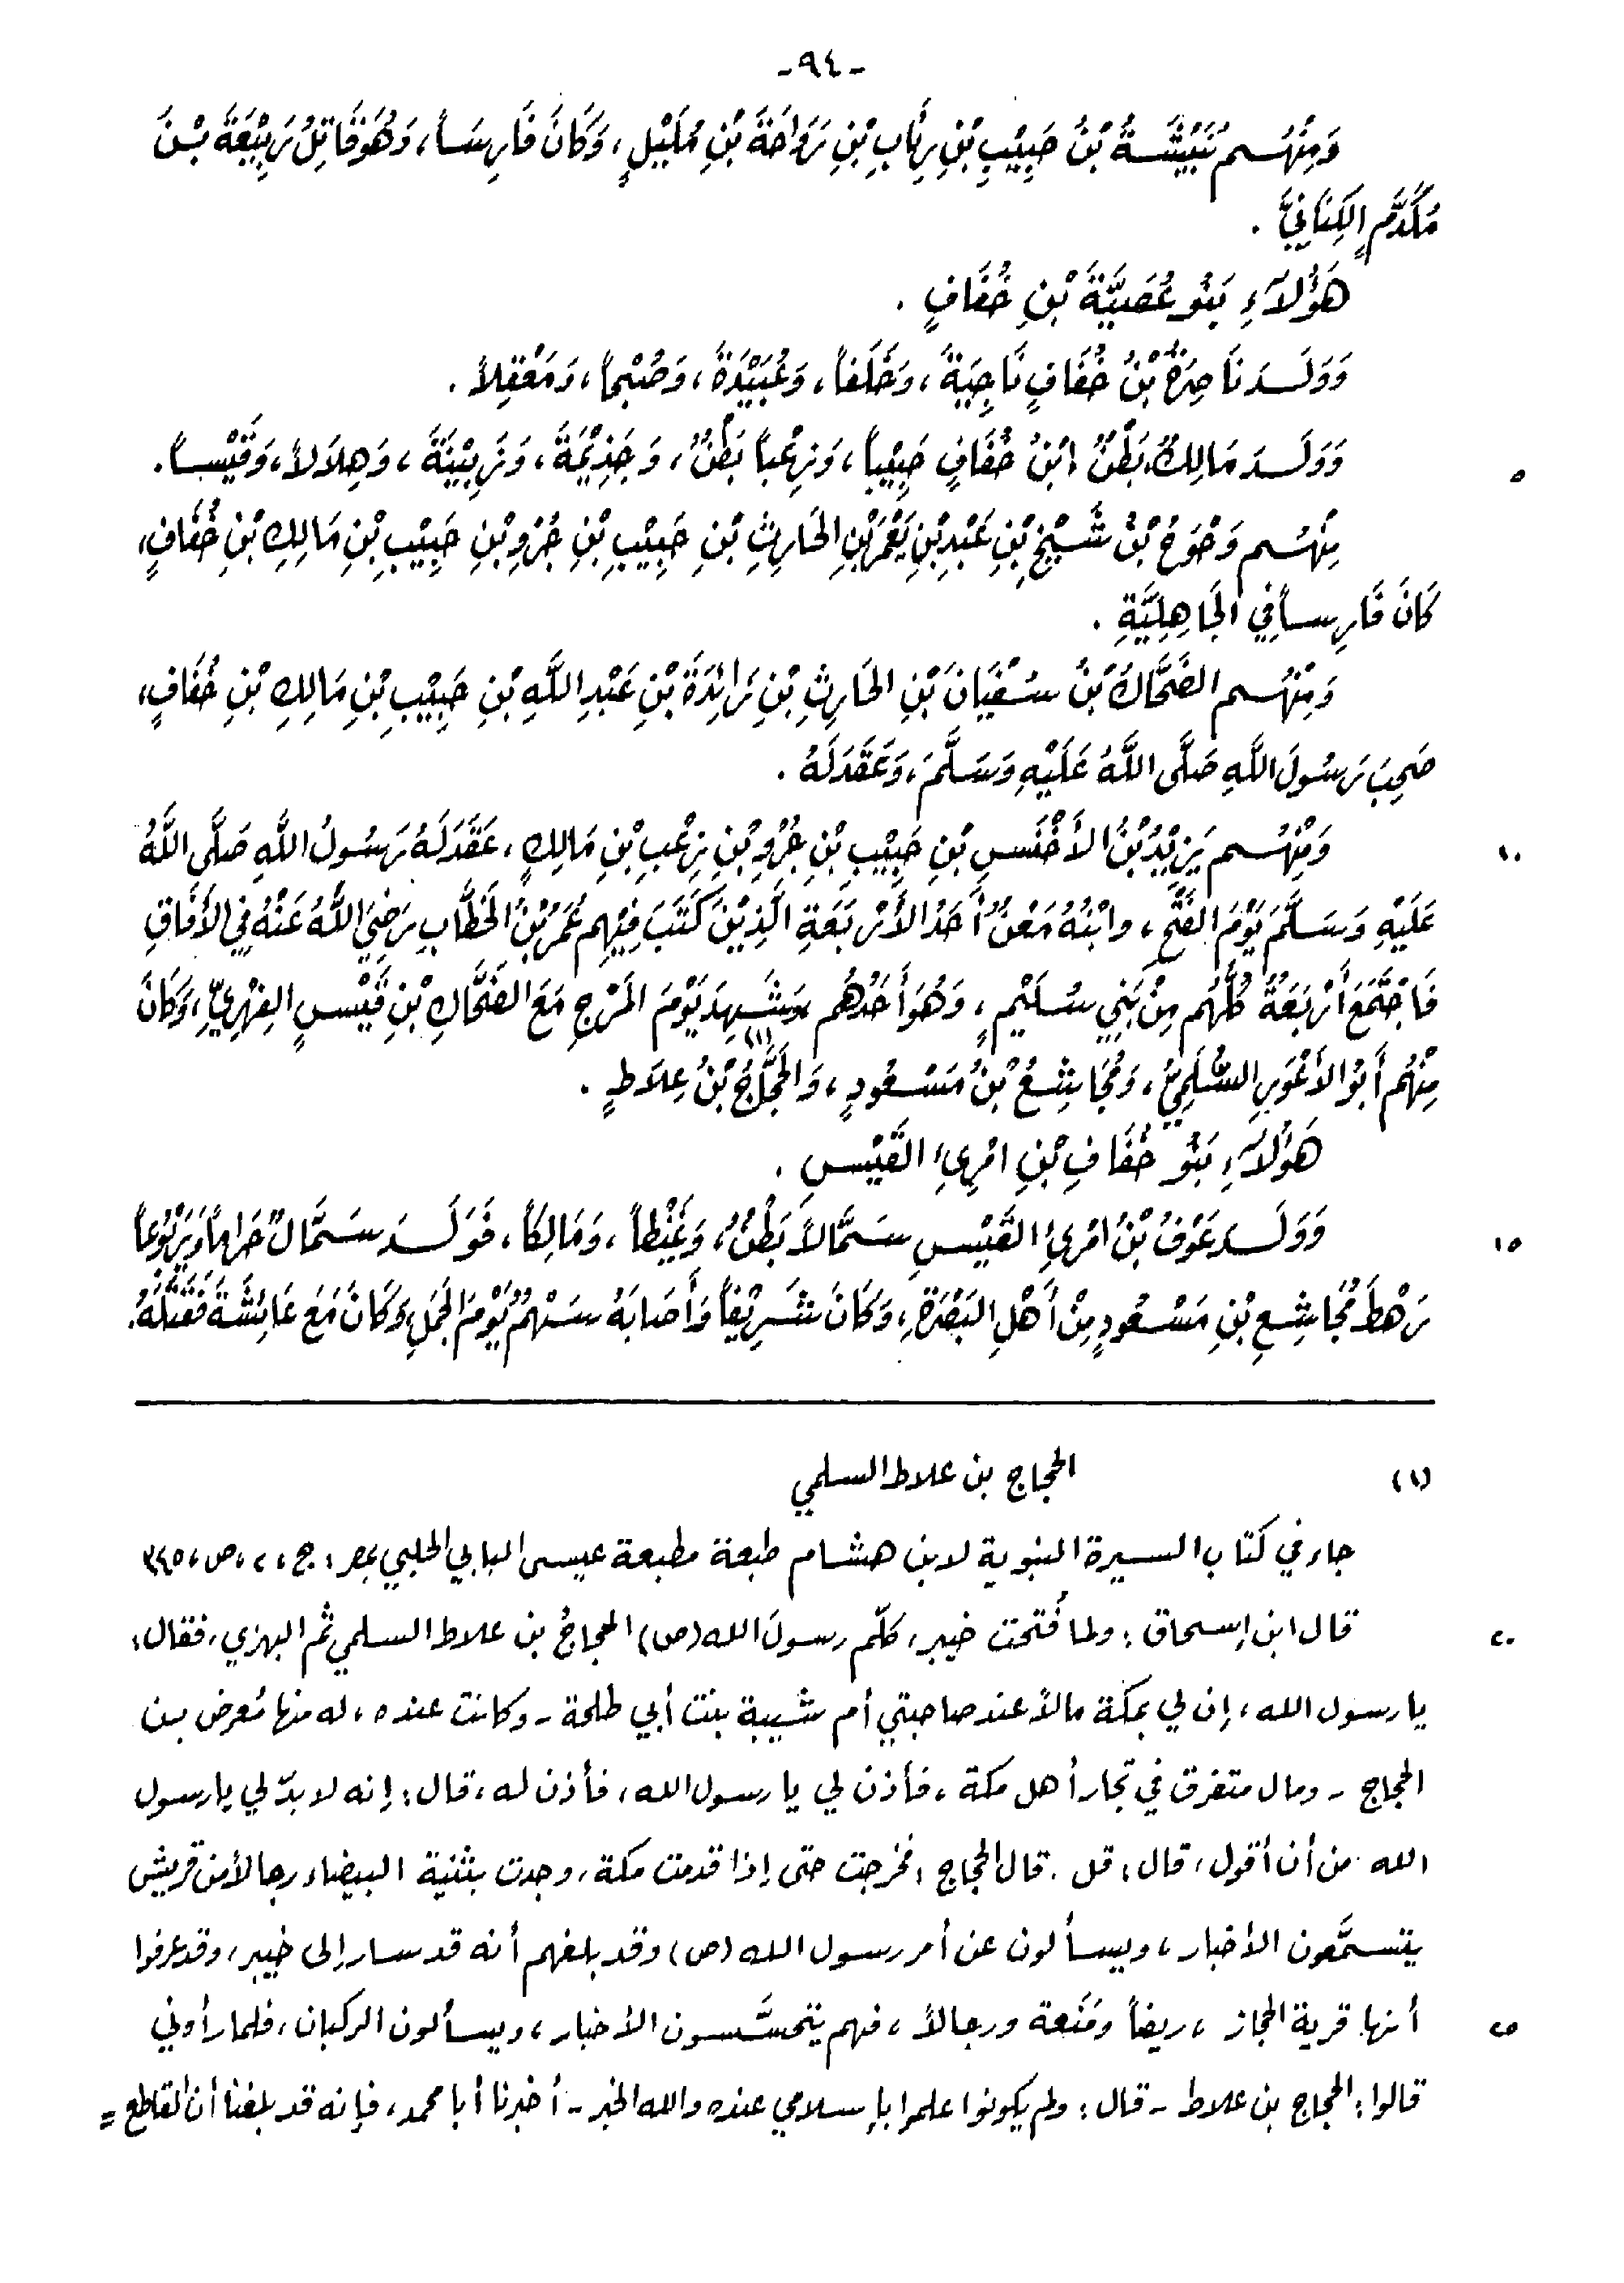 -٩٤-
وَمِنْهُم نُبَيْشَةُ بْنُ حَبِيْبِ بْنِ رِئَابِ بْنِ رَوَاحَةَ بْنِ مُلَيْلٍ، وَكَانَ فَارِسَاً، وَهُوَ قَاتِلُ رَبِيْعَةَ بْنَ
مُكَدَّمٍ الكِنَانِيَّ .
هَؤُلَآءِ بَنُو عُصَيَّةَ بْنِ خُفَافٍ .
وَوَلَدَ نَاصِرَةُ بْنُ خُفَافٍ نَاجِيَةً، وَخَلَفاً، وَعُبَيْدَةَ، وَصُبْحاً، وَمَعْقِلاً .
وَوَلَدَ مَالِكٌ بَطْنٌ ابْنُ خُفَافٍ حَبِيْباً، وَزِعْباً بَطْنٌ، وَجَذِيْمَةَ، وَزَبِيْنَةَ، وَهِلَالاً، وَقَيْساً .
٥
مِنْهُم وَحْوَحُ بْنُ شَيْخِ بْنِ عَبْدِ بْنِ يَعْمَرَ بْنِ الحَارِثِ بْنِ حَبِيْبِ بْنِ جُرْوِ بْنِ حَبِيْبِ بْنِ مَالِكِ بْنِ خُفَافٍ،
كَانَ فَارِساً فِي الجَاهِلِيَّةِ .
وَمِنْهُم الضَّحَّاكُ بْنُ سُفْيَانَ بْنِ الحَارِثِ بْنِ زَائِدَةَ بْنِ عَبْدِ اللَّهِ بْنِ حَبِيْبِ بْنِ مَالِكِ بْنِ خُفَافٍ،
صَحِبَ رَسُولَ اللَّهِ صَلَّى اللَّهُ عَلَيْهِ وَسَلَّمَ، وَعَقَدَ لَهُ .
وَمِنْهُم يَزِيْدُ بْنُ الأَخْنَسِ بْنِ حَبِيْبِ بْنِ جُرْوِ بْنِ زِعْبِ بْنِ مَالِكٍ، عَقَدَ لَهُ رَسُولُ اللَّهِ صَلَّى اللَّهُ
١٠
عَلَيْهِ وَسَلَّمَ يَوْمَ الفَتْحِ، وابْنُهُ مَعْنٌ أَحَدُ الأَرْبَعَةِ الَّذِيْنَ كَتَبَ فِيْهِم عُمَرُ بْنُ الخَطَّابِ رَضِيَ اللَّهُ عَنْهُ فِي الآفَاقِ
فَاجْتَمَعَ أَرْبَعَةٌ كُلُّهُم مِنْ بَنِي سُلَيْمٍ، وَهُوَ أَحَدُهُم وَشَهِدَ يَوْمَ المَرْجِ مَعَ الضَحَّاكِ بْنِ قَيْسٍ الفِهْرِيِّ، وَكَانَ
مِنْهُم أَبُو الأَعْوَرِ السُّلَمِيُّ، وَمُجَاشِعُ بْنُ مَسْعُودٍ، وَالحَجَّاجُ (١) بْنُ عِلَاطٍ .
هَؤُلَآءِ بَنُو خُفَافِ بْنِ امْرِئِ القَيْسِ .
وَوَلَدَ عَوْفُ بْنُ امْرِئِ القَيْسِ سَمَّالاً بَطْنٌ، وَغَيْظاً، وَمَالِكاً، فَوَلَدَ سَمَّالٌ حَرَاماً وَيَرْبُوْعاً
١٥
رَهْطَ مُجَاشِعِ بْنِ مَسْعُودٍ مِنْ أَهْلِ البَصْرَةِ، وَكَانَ شَرِيْفاً وَأَصَابَهُ سَهْمٌ يَوْمَ الجَمَلِ وَكَانَ مَعَ عَائِشَةَ فَقَتَلَهُ.
(١) الحجاج بن علاط السلمي
جاء في كتاب السيرة النبوية لابن هشام طبعة مطبعة عيسى البابي الحلبي بمصر : ج ، ٢ ، ص ، ٣٤٥
قال ابن إسحاق : ولما فُتحت خيبر، كلّم رسولَ الله (ص) الحجاجُ بن علاط السلمي ثم البهزي ، فقال :
٢٠
يا رسول الله ، إن لي بمكة مالاً عند صاحبتي أم شيبة بنت أبي طلحة - وكانت عنده ، له منها مُعرض بن
الحجاج - ومال متفرق في تجار أهل مكة ، فأذن لي يا رسول الله ، فأذن له ، قال : إنه لا بدّ لي يا رسول
الله من أن أقول ، قال : قل . قال الحجاج : فخرجت حتى إذا قدمت مكة ، وجدت بثنية البيضاء رجالاً من قريش
يتسمَّعون الأخبار ، ويسألون عن أمر رسول الله (ص) وقد بلغهم أنه قد سار إلى خيبر ، وقد عرفوا
أنها قرية الحجاز ، ريفاً ومَنَعة ورجالاً ، فهم يتحسَّسون الأخبار ، ويسألون الركبان ، فلما رأوني
٢٥
قالوا : الحجاج بن علاط - قال : ولم يكونوا علموا بإسلامي عنده والله الخبر - أخبرنا أبا محمد ، فإنه قد بلغنا أن القاطع =